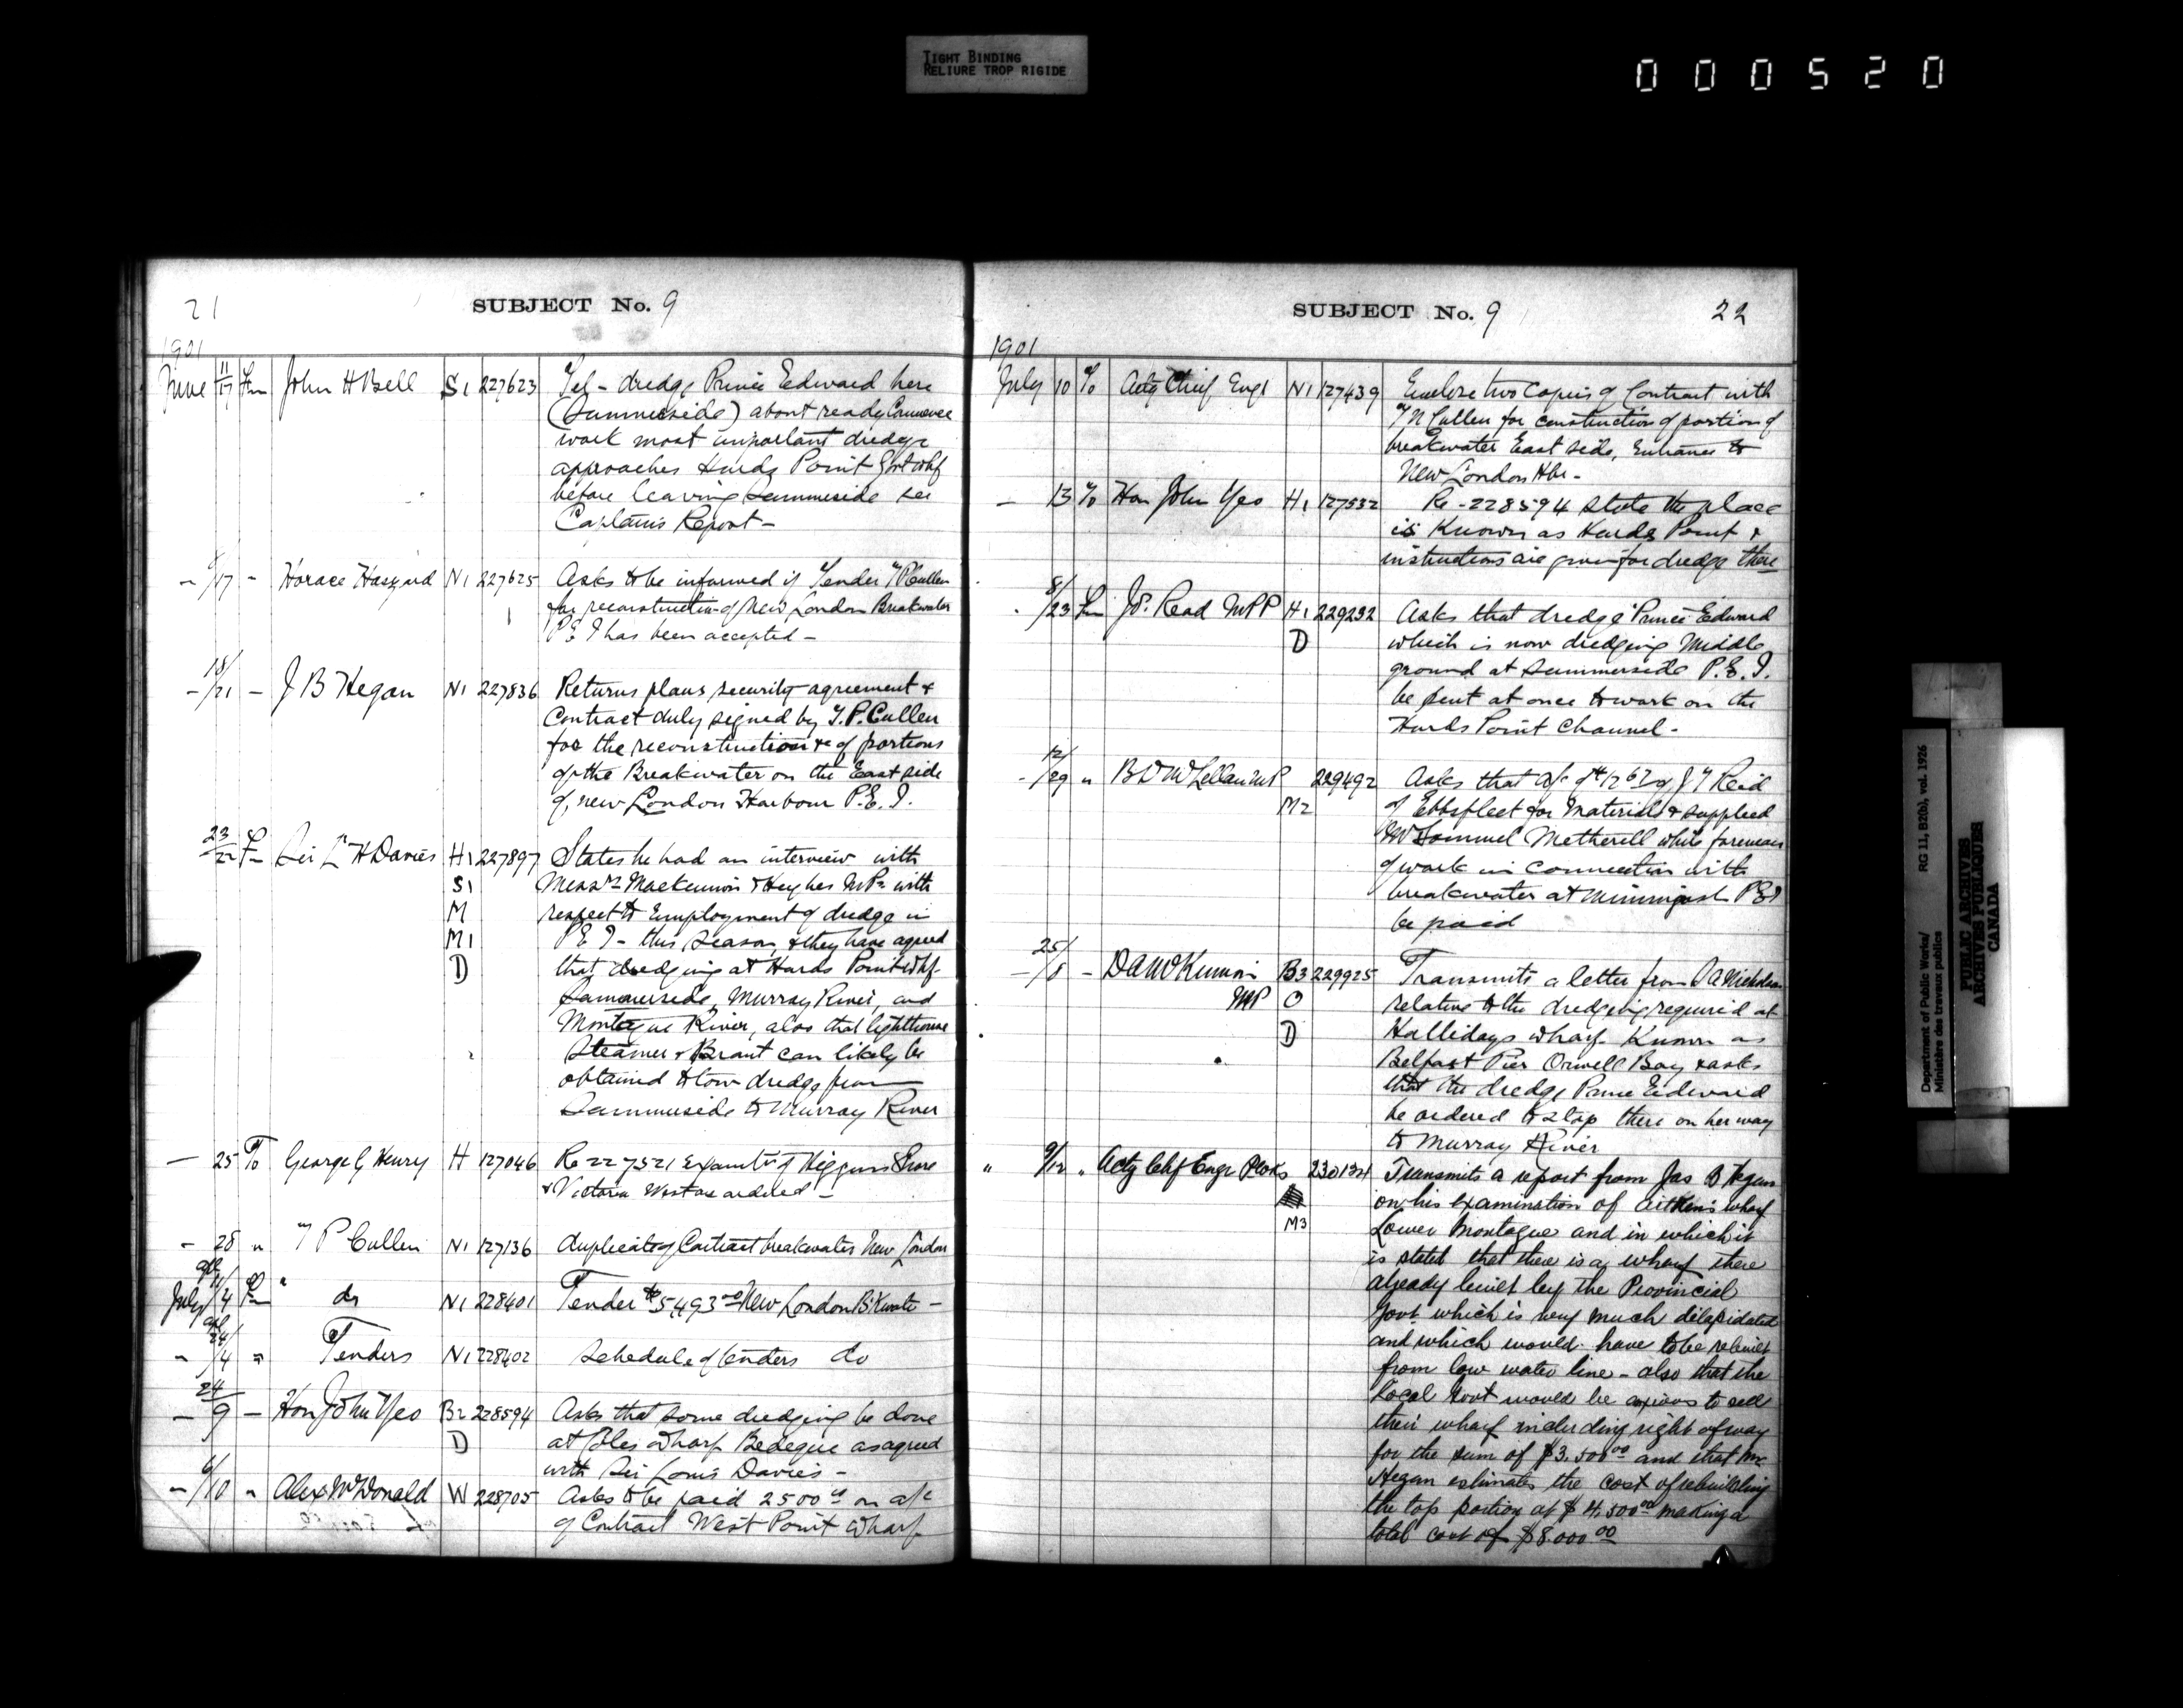 TIGHT BINDING
RELIURE TROP RIGIDE
000520
21
SUBJECT No. 9
1901
June 11/17 Fm John H Bell S1 227623 Tel - dredge Prince Edward here
(Summerside) about ready Commence
work most important dredge
approaches Hurds Point Govt Whf
before leaving Summerside see
Captain's Report -
- /17 - Horace Haszard N1 227625 Asks to be informed if Tender T P Cullen
for reconstruction of New London Breakwater
P E I has been accepted -
- 18/21 - J B Hegan N1 227836 Returns plans security agreement &
Contract duly signed by T. P. Cullen
for the reconstruction &c of portions
of the Breakwater on the East side
of new London Harbour P. E. I.
23/22 Fm Sir L H Davies H1 227897 States he had an interview with
S1 Messrs Mackinnon & Hughes MPs with
M respect to Employment of dredge in
M1 P E I - this season, & they have agreed
D that dredging at Hurds Point Whf
Summerside, Murray River, and
Montague River, also that lighthouse
Steamer Brant can likely be
obtained to tow dredge from
Summerside to Murray River
- 25 To George G Henry H 127046 Re 227521 Examtn of Higgins Shore
& Victoria West as ordered -
- 28 " T P Cullen N1 127136 duplicate of Contract breakwater New London
July /4 Fm " do N1 228401 Tender $5,493.00 New London B'Kwater -
- 24/4 " Tenders N1 228402 Schedule of tenders do
- 24/9 - Hon John Yeo B2 228594 Asks that some dredging be done
D at Coles Wharf Bedeque as agreed
with Sir Louis Davies -
- /10 " Alex McDonald W 228705 Asks to be paid 2500 on a/c
of Contract West Point Wharf
SUBJECT No. 9
22
1901
July 10 To Actg Chief Engr N1 127439 Enclose two Copies of Contract with
Cullen for construction of portion of
breakwater East side, Entrance to
New London Hbr -
- 13 To Hon John Yeo H1 127532 Re - 228594 state the place
is Known as Hurds Point &
instructions are given for dredge there
8/23 Fm J. Read MPP H1 229232 Asks that dredge Prince Edward
D which is now dredging Middle
ground at Summerside P. E. I.
be sent at once to work on the
Hurds Point Channel -
- 12/29 " B D McLellan MP 229492 Asks that a/c of J T Reid
M2 of Ebbsfleet for Materials supplied
Sammuel Metherell while foreman
of work in Connection with
breakwater at Miminigash P E I
be paid
- 25/8 - D A McKinnon B3 229925 Transmits a letter from
MP O relative to the dredging required at
D Hallidays wharf Known as
Belfast Pier Orwell Bay & asks
that the dredge Prince Edward
be ordered to stop there on her way
to Murray River
" 9/12 " Actg Chf Engr PWks 230134 Transmits a report from Jas B Hegan
on his examination of Aitken's wharf
M3 Lower Montague and in which it
is stated that there is a wharf there
already built by the Provincial
Govt which is very much dilapidated
and which would have to be rebuilt
from low water line - also that the
Local Govt would be anxious to sell
their wharf including right of way
for the sum of $3,500.00 and that Mr
Hegan estimates the cost of rebuilding
the top portion at $4,500.00 making a
total cost of $8,000.00
Department of Public Works/ RG 11, B2(b), vol. 1926
Ministère des travaux publics
PUBLIC ARCHIVES
ARCHIVES PUBLIQUES
CANADA